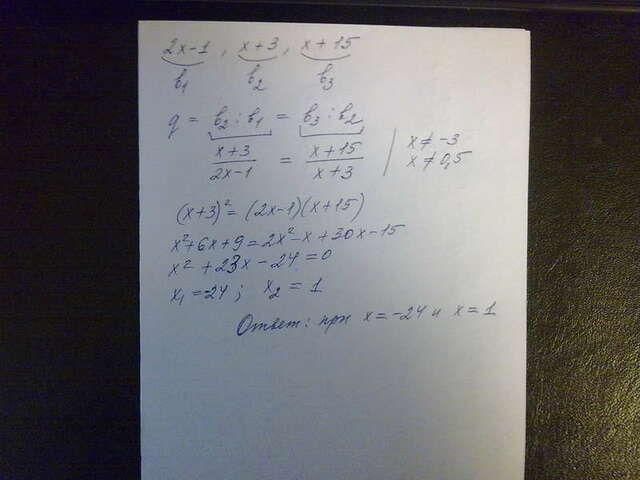 2x-1, x+3, x+15
b₁ b₂ b₃
q = b₂ : b₁ = b₃ : b₂
x+3/2x-1 = x+15/x+3 | x ≠ -3
x ≠ 0,5
(x+3)² = (2x-1)(x+15)
x²+6x+9=2x²-x+30x-15
x² + 23x - 24 = 0
x₁ = -24; x₂ = 1
Ответ: при x = -24 и x = 1